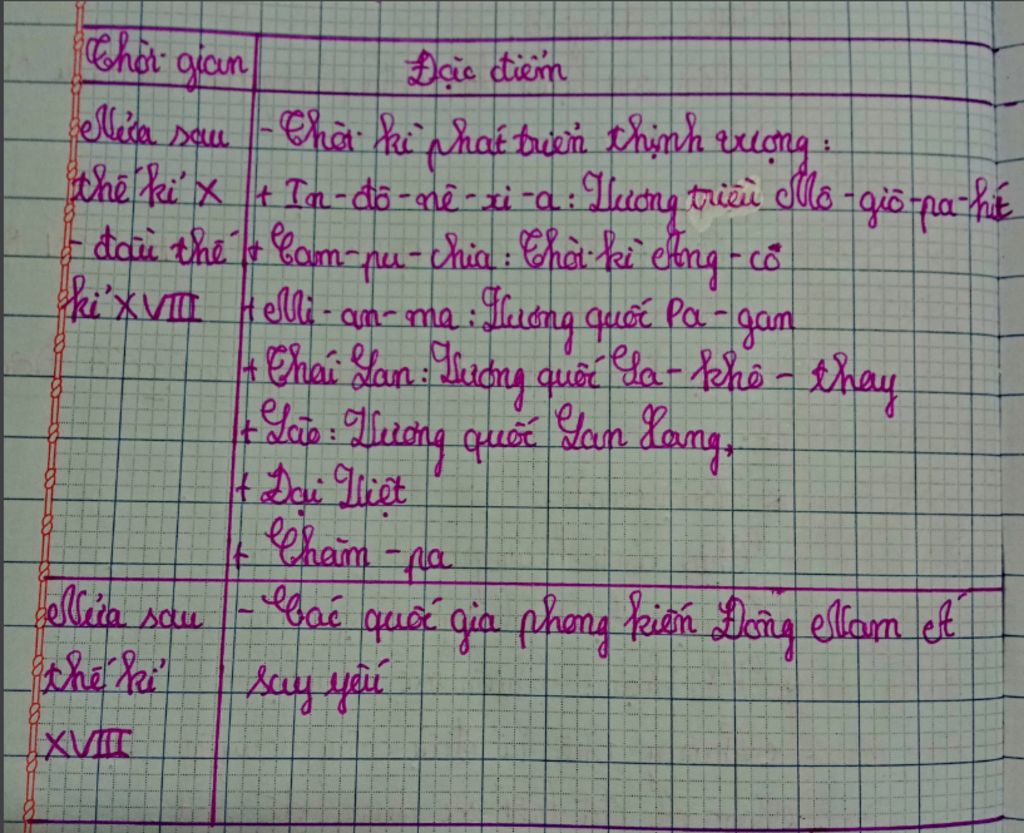 Thời gian
Đặc điểm
Nửa sau
thế kỉ X
- đầu thế
kỉ XVIII
- Thời kì phát triển thịnh vượng :
+ In-đô-nê-xi-a : Vương triều Mô-giô-pa-hit
+ Cam-pu-chia : Thời kì Ăng-co
+ Mi-an-ma : Vương quốc Pa-gan
+ Thái Lan : Vương quốc Su-khô-thay
+ Lào : Vương quốc Lan Xang,
+ Đại Việt
+ Chăm-pa
Nửa sau
thế kỉ
XVIII
- Các quốc gia phong kiến Đông Nam Á
suy yếu